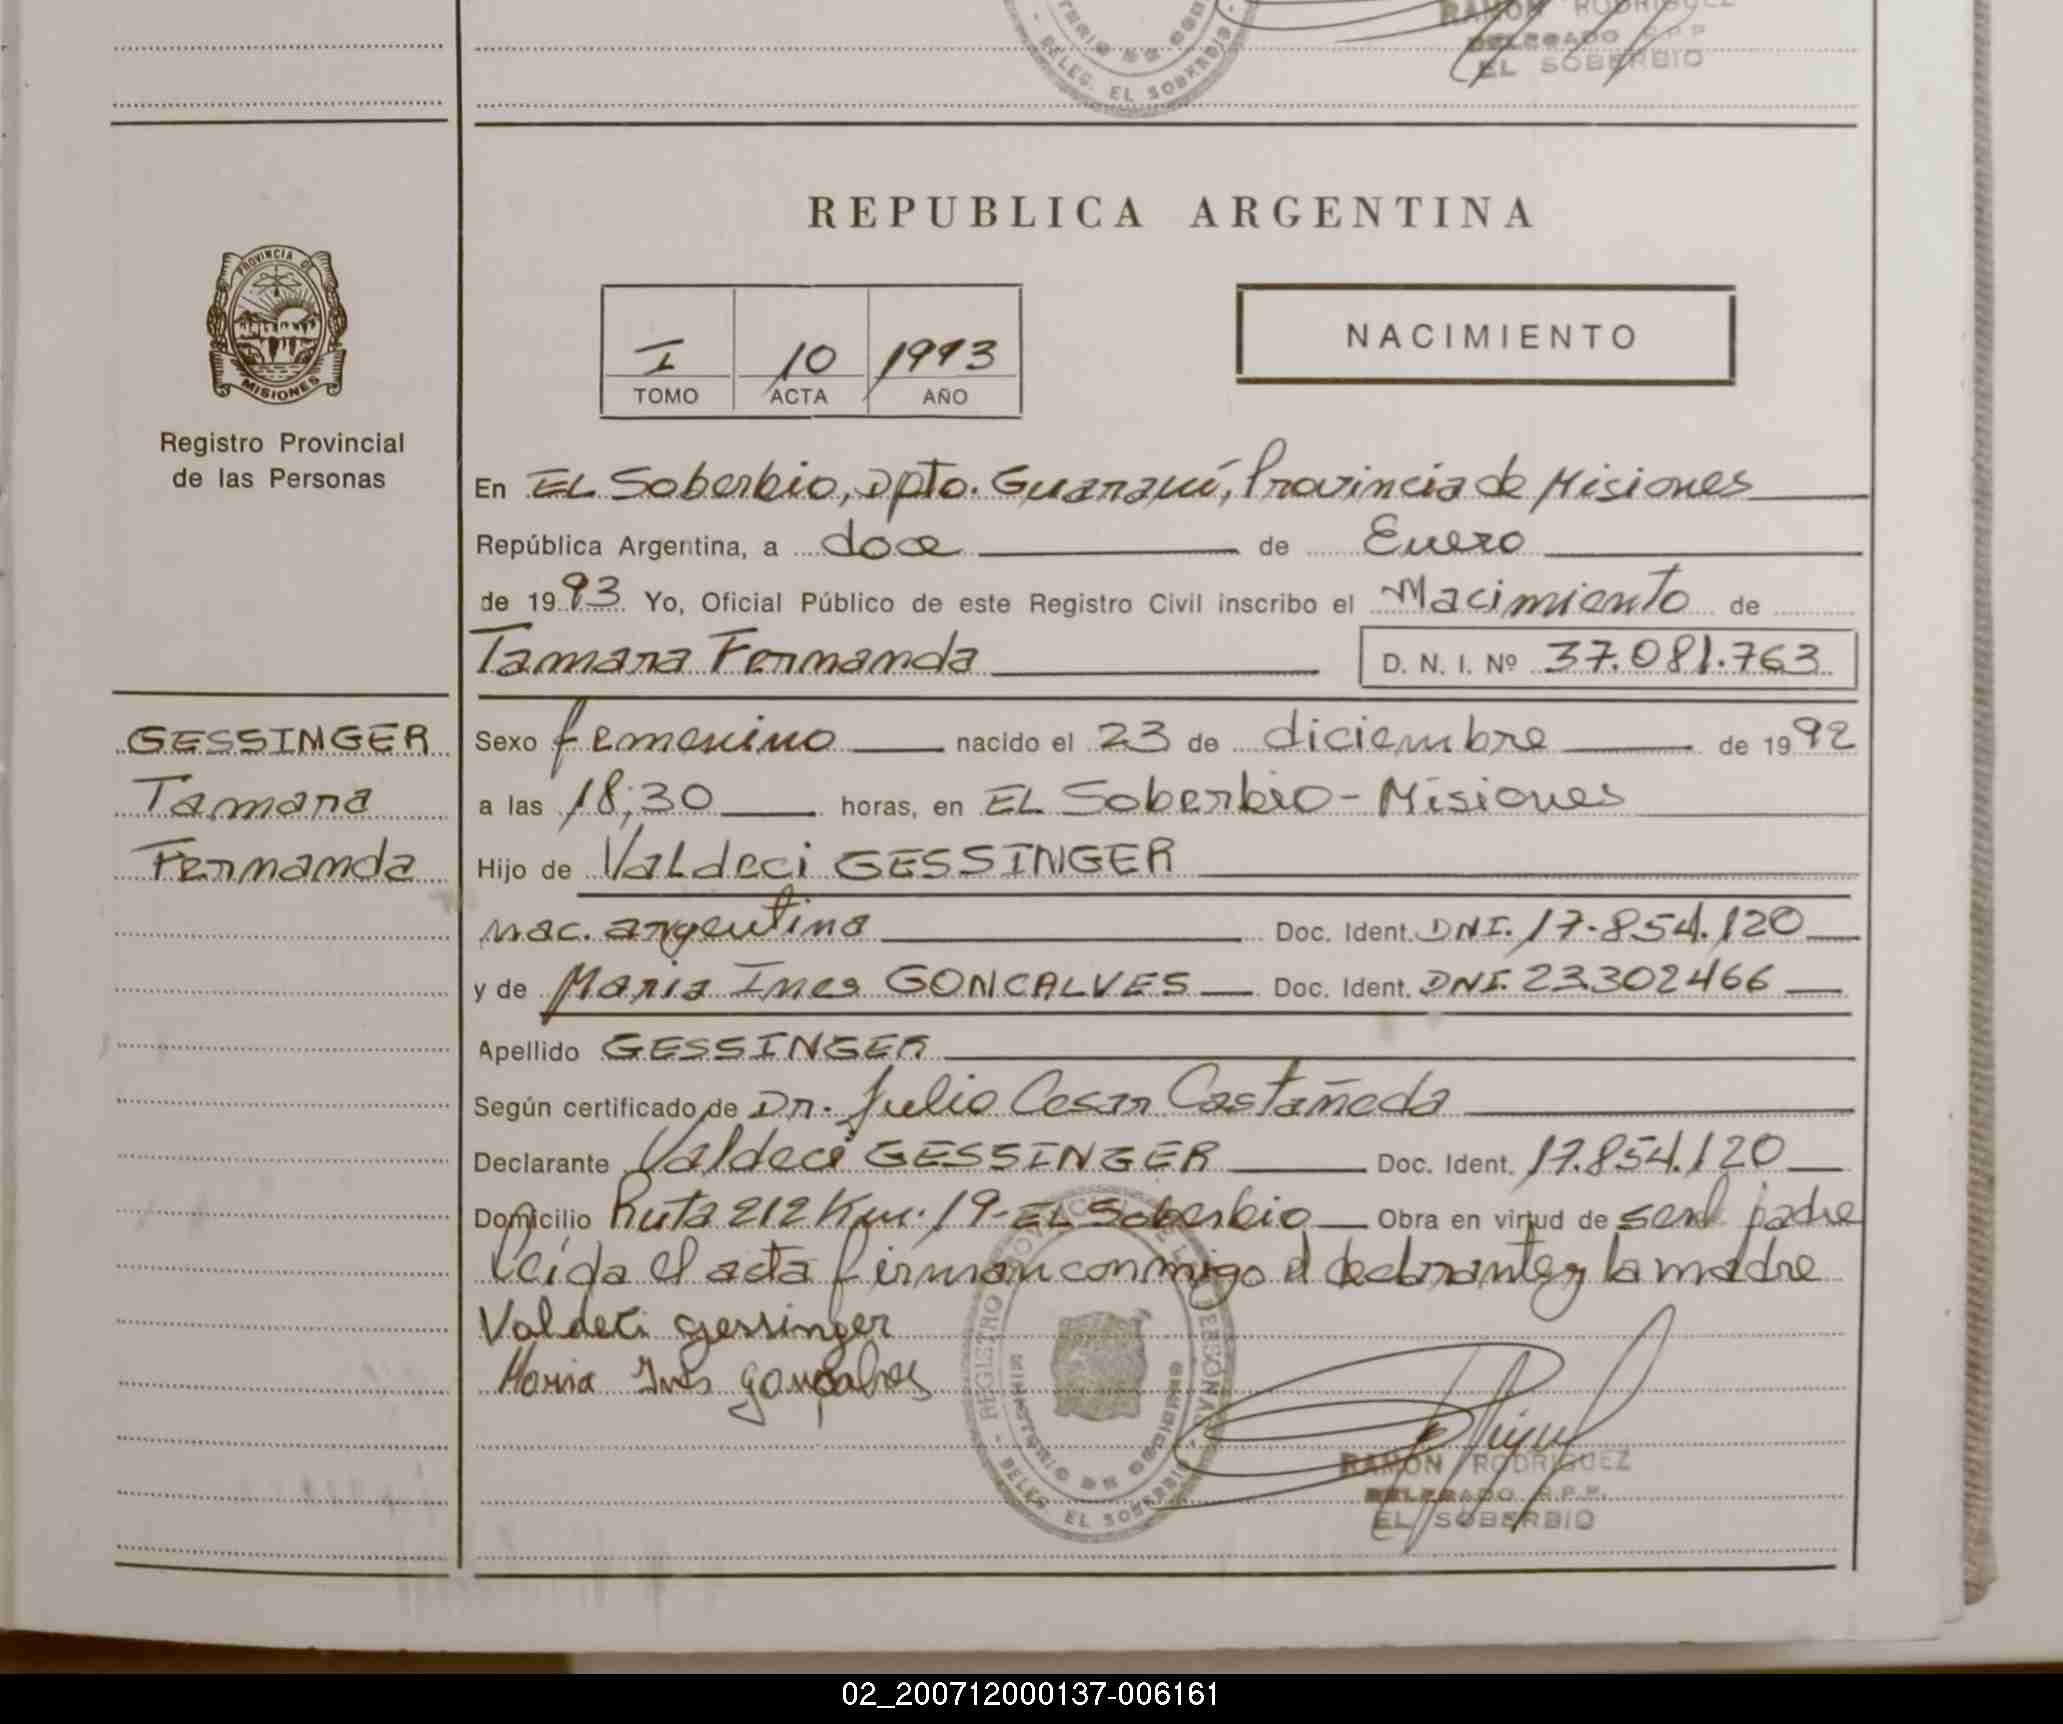 RAMON RODRIGUEZ
DELEGADO R.P.P.
EL SOBERBIO
DELEG. EL SOBERBIO
REPUBLICA ARGENTINA
PROVINCIA DE
MISIONES
Registro Provincial
de las Personas
I 10 1993
TOMO ACTA AÑO
NACIMIENTO
En EL Soberbio, Dpto. Guaraní, Provincia de Misiones
República Argentina, a doce de Enero
de 1993 Yo, Oficial Público de este Registro Civil inscribo el Nacimiento de
Tamara Fernanda D. N. I. Nº 37.081.763
GESSINGER
Tamara
Fernanda
Sexo femenino nacido el 23 de diciembre de 1992
a las 18;30 horas, en EL Soberbio - Misiones
Hijo de Valdeci GESSINGER
nac. argentina Doc. Ident. DNI. 17.854.120
y de Maria Ines GONCALVES Doc. Ident. DNI. 23.302466
Apellido GESSINGER
Según certificado de Dr. Julio Cesar Castañeda
Declarante Valdeci GESSINGER Doc. Ident. 17.854.120
Domicilio Ruta 212 Km. 19 - EL Soberbio Obra en virtud de ser el padre
Leída el acta firman conmigo el declarante y la madre
Valdeci gessinger
Maria Ines gonçalves
REGISTRO PROVINCIAL DE LAS PERSONAS
MINISTERIO DE GOBIERNO
DELEG. EL SOBERBIO
RAMON RODRIGUEZ
DELEGADO R.P.P.
EL SOBERBIO
02_200712000137-006161